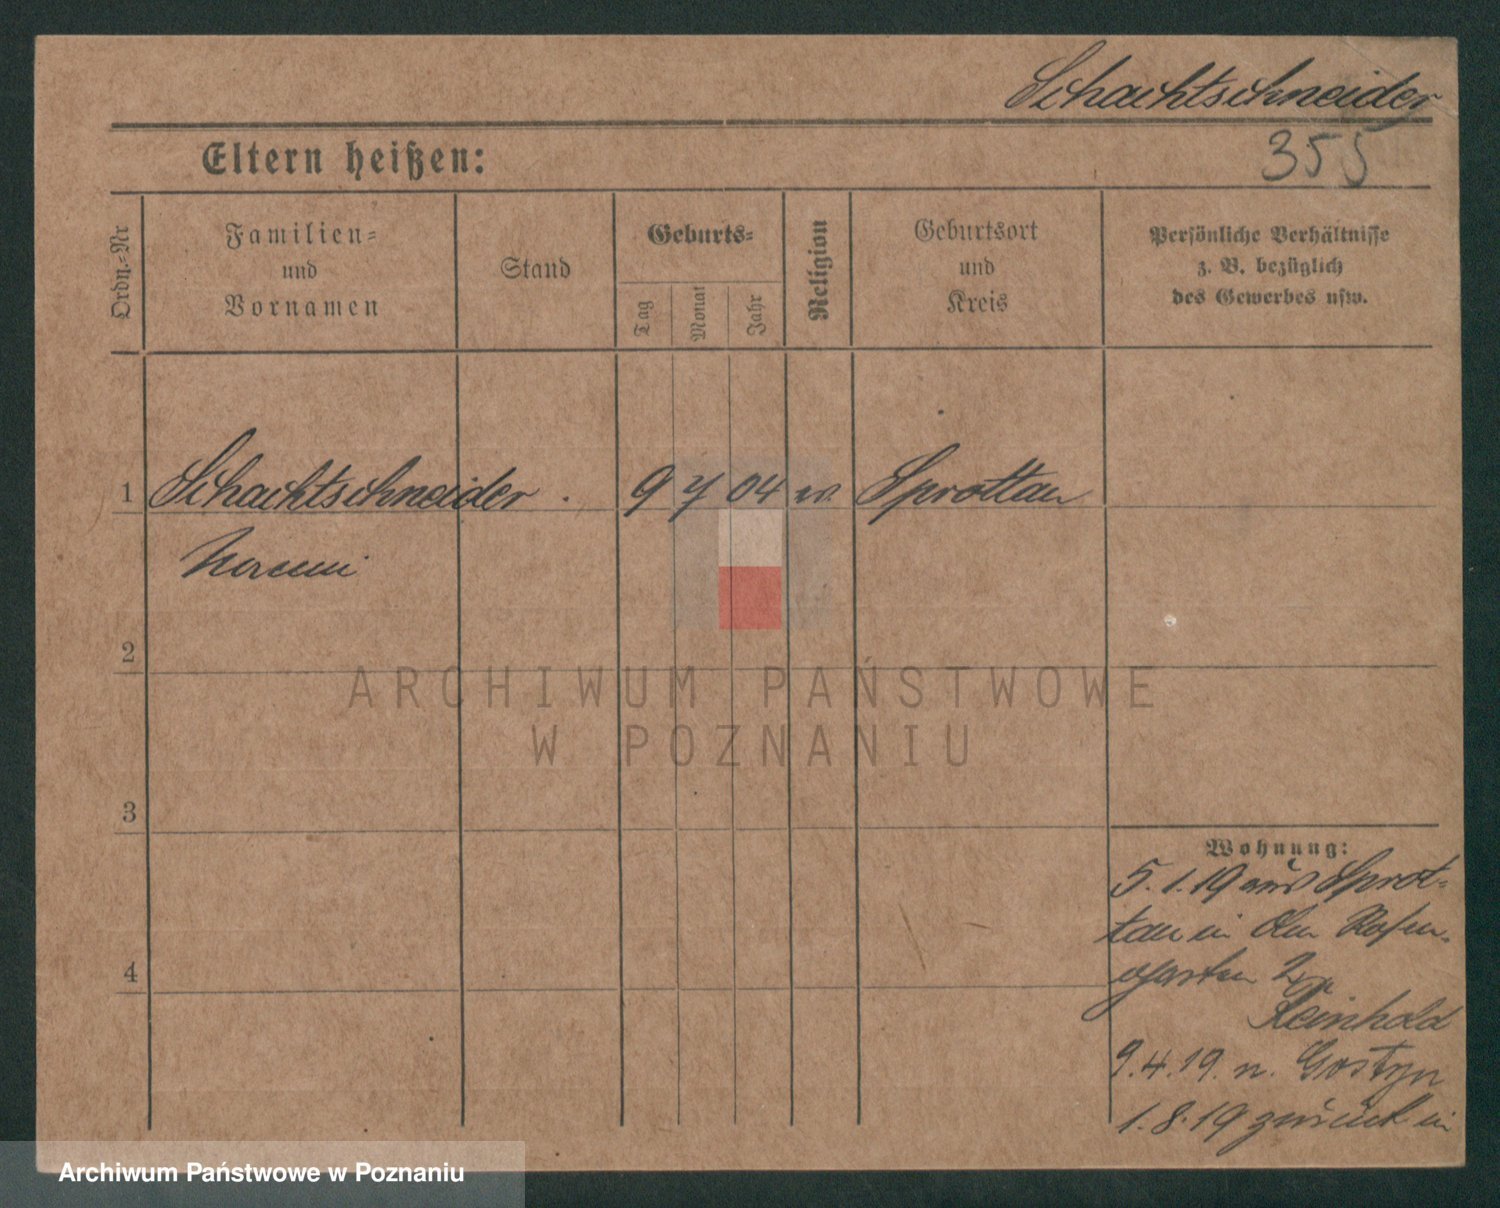 Schachtschneider
355
Eltern heißen:
Ordn.-Nr
Familien-
und
Vornamen
Stand
Geburts-
Tag
Monat
Jahr
Religion
Geburtsort
und
Kreis
Persönliche Verhältnisse
z. B. bezüglich
des Gewerbes usw.
1 Schachtschneider . 9 7 04 Sprottau
2
3
4
Wohnung:
5.1.19 aus Sprot-
tau in Rosen-
garten 2
Reinhold
9.4.19. n. Gostyn
1.8.19 zurück in
ARCHIWUM PAŃSTWOWE
W POZNANIU
Archiwum Państwowe w Poznaniu